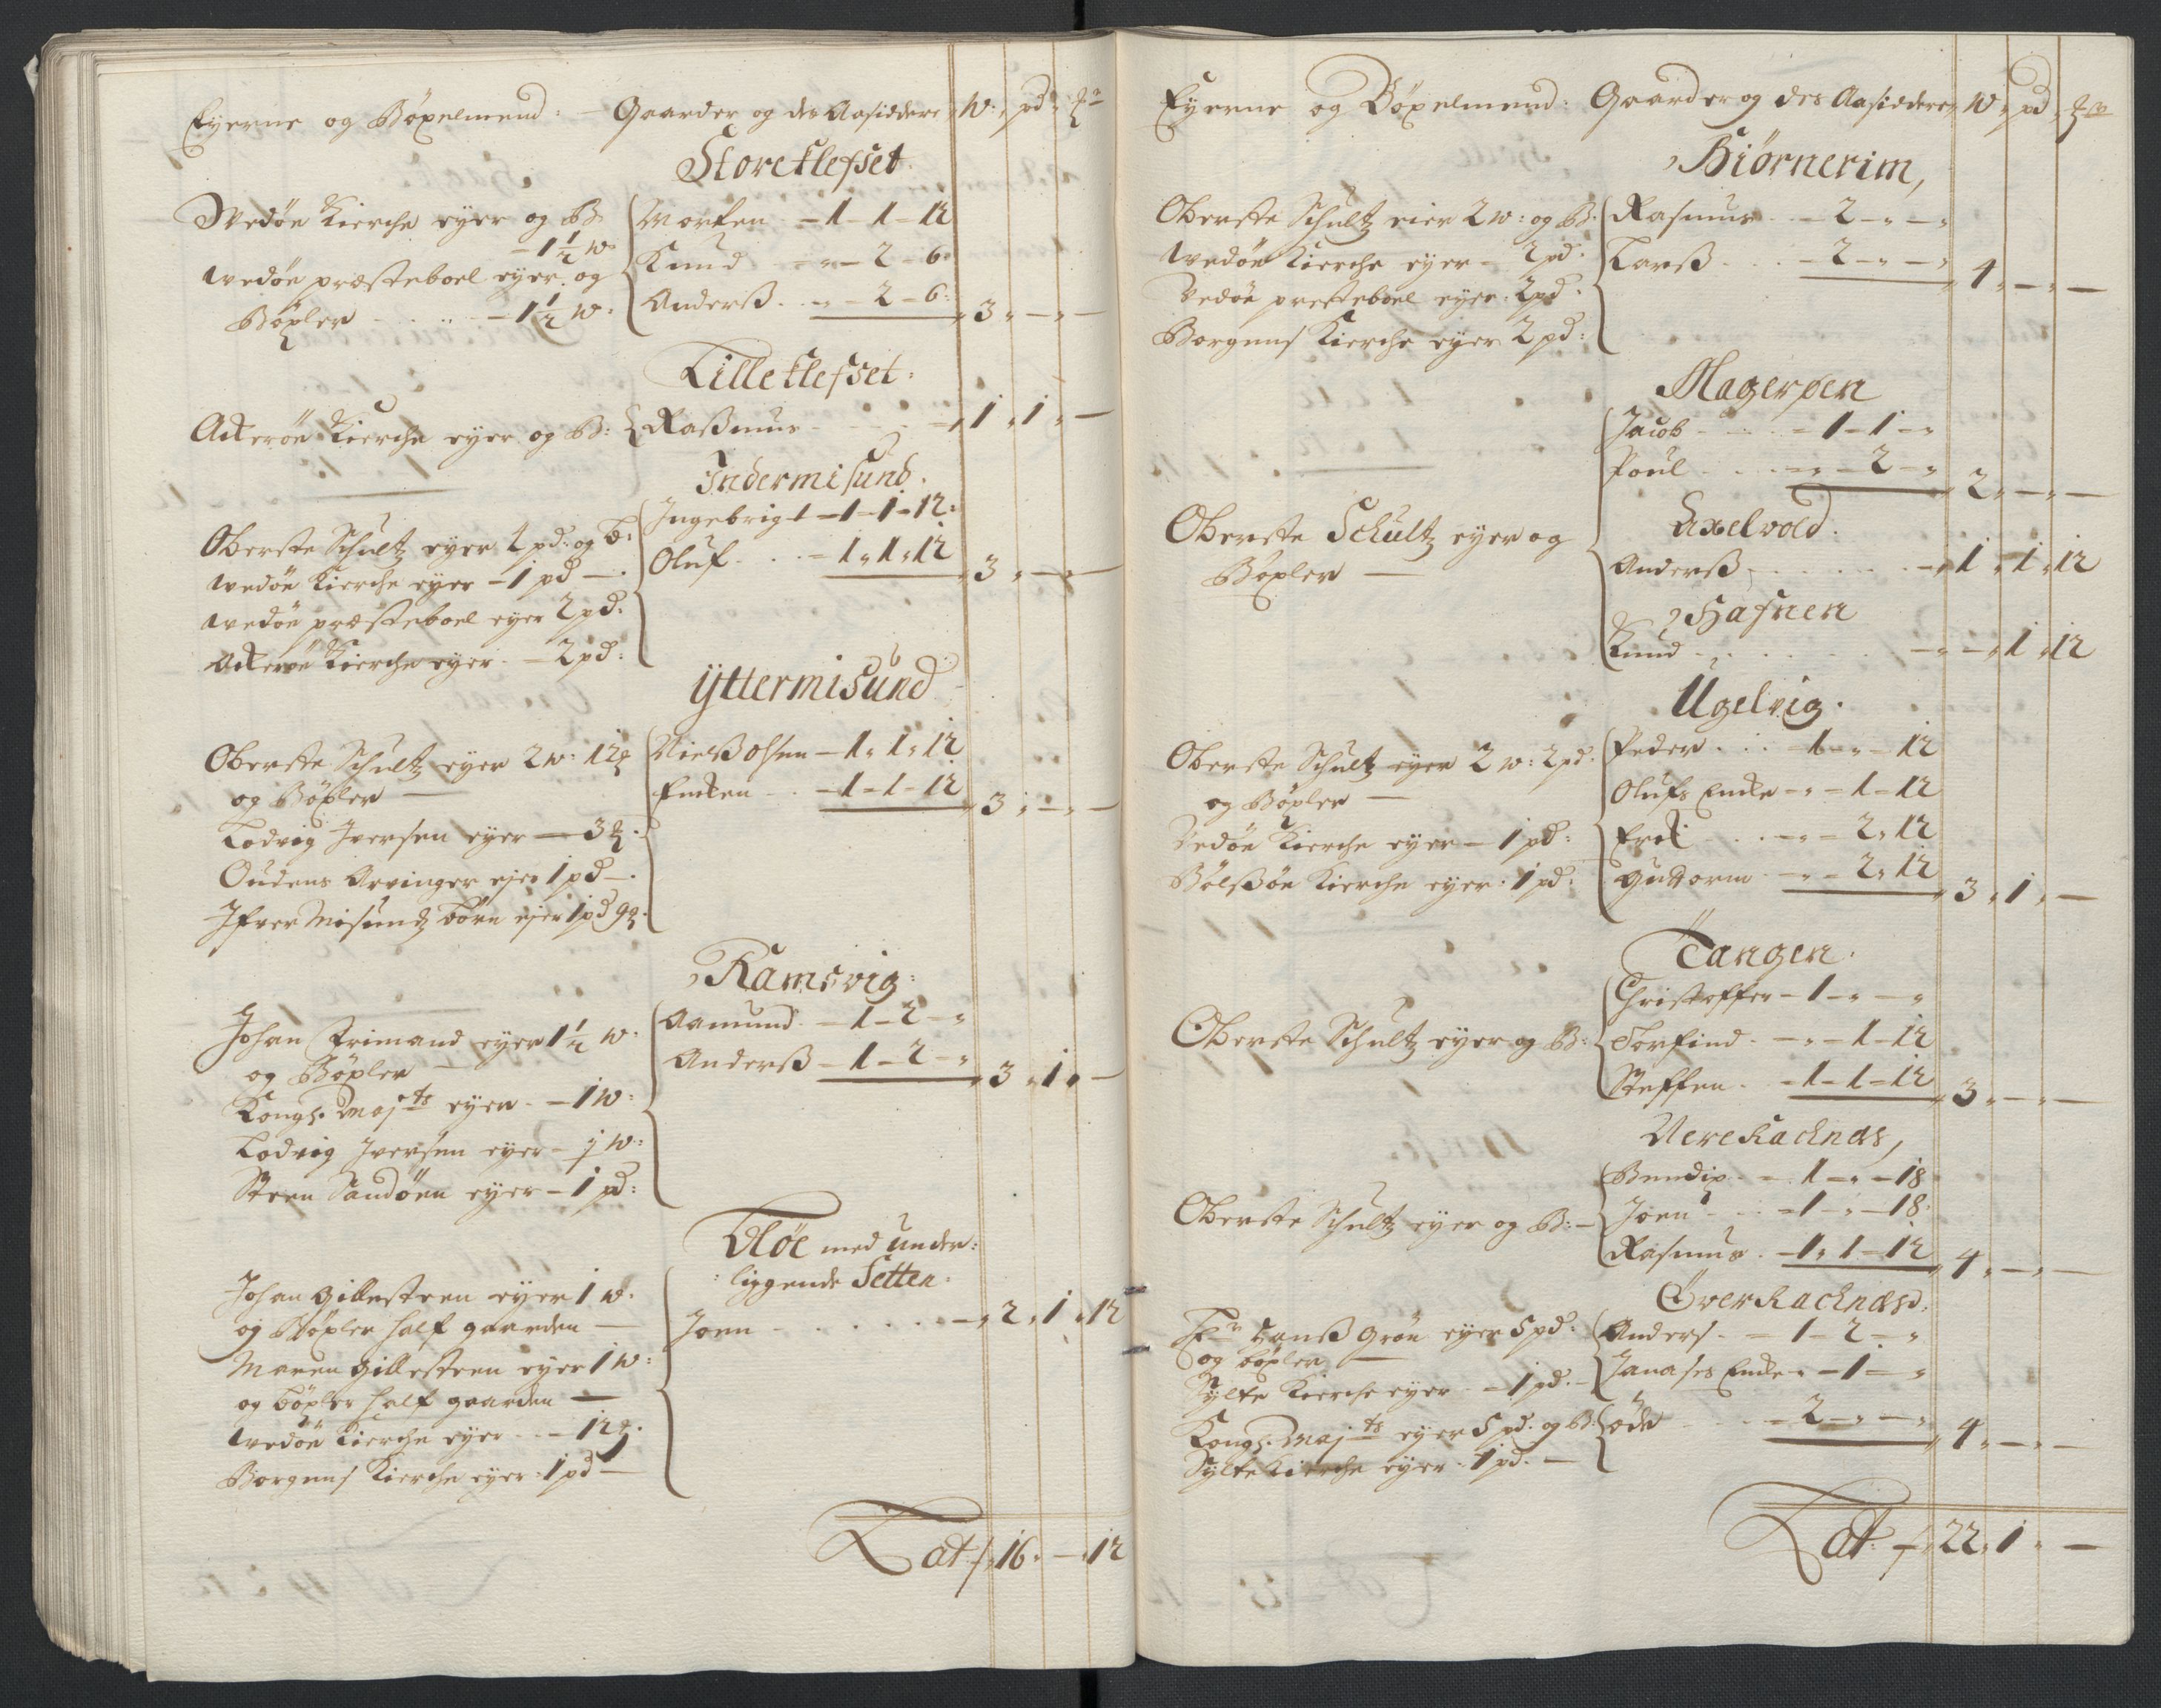 Eyerne og Böxelmend: — Gaarder og des Aasiddere W: pd: ℔r
Storeklefset
Wedöe Kierche eyer og B:
– 1½ w
wedöe præsteboel eyer og
Böxler – 1½ w:
Morten – 1 – 1 – 12
Knud – „ – 2 – 6:
Anderß – „ – 2 – 6:
3 „ — „ —
Lilleklefset:
Ackeröe Kierche eyer og B: Raßmus – „ 1 „ 1 „ —
Indermisund.
Oberste Schultz eyer 4 pd: og B:
wedöe Kierche eyer – 1 pd –
wedöe præsteboel eyer 2 pd:
Ackeröe Kierche eyer – 2 pd:
Ingebrigt – 1 – 1 – 12:
Oluf – 1 „ 1 „ 12
3 „ — „ —
ÿttermisund
Oberste Schultz eyer 2 w: 12 ℔
og Böxler —
Lodvig Iversen eyer — 3 ℔.
Oudens Arvinger ejer 1 pd –.
Ifver Misundz börn ejer 1 pd 9 ℔.
Nielß olsen – 1 „ 1 „ 12
Encken – 1 – 1 – 12
3 „ — „ —
Ramsvig:
Johan Frimand eyer 1½ w:
og Böxler —
Kongl. Majts eyer – 1 w:
Lodvig Iversen eyer – j w:
Steen Sandöen eyer – 1 pd:
Aamund – 1 – 2 – „
Anderß – 1 – 2 – „
3 „ 1 „ —
Flöe med under:
liggende Setten.
Johan Gillesteen eyer 1 w.
og Böxler half gaarden —
Maren Gillesteen eyer 1 w:
og böxler half gaarden —
wedöe Kierche eyer – 12 ℔.
Borgens Kierche eyer : 1 pd —
Joen – „ 2 „ 1 „ 12
Lat: / „ 16 „ — „ 12
Eyerne og Böxelmend: Gaarder og des Aasiddere W „ pd „ ℔r
Biörnerim,
Oberste Schultz eier 2 w: og B:
wedöe Kierche eyer – 2 pd:
Vedöe presteboel eyer: 2 pd:
Borgens Kierche eyer 2 pd:
Rasmus – 2 – „ – „
Larß – 2 – „ – „
4 „ — „ —
Magerøen
Jacob – 1 – 1 – „
Poul – „ – 2 – „
2 „ — „ —
Oberste Schultz eyer og
Böxler —
Axelvold:
Anderß – „ 1 „ 1 „ 12
Hafnen
Knud – „ – „ 1 „ 12
Ugelvig.
Oberste Schultz eyer 2 w: 2 pd:
og Böxler —
Vedöe Kierche eyer – 1 pd:
Bölßöe Kierche eyer : 1 pd:
Peder – 1 – „ – 12
Olufs Encke – „ – 1 – 12
Erik – „ – 2 „ 12
Guttorm – „ – 2 „ 12
3 „ 1 „ —
Tangen.
Oberste Schultz eyer og B:
Christoffer – 1 – „ – „
Torfind – „ – 1 – 12
Steffen – 1 – 1 – 12
3 „ — „ —
Nerekachnæs,
Oberste Schultz eyer og B: –
Bendix – 1 – „ – 18
Joen – 1 – „ – 18.
Rasmus – 1 „ 1 – 12
4 „ — „ —
Överkachnæs:
Hr Hanß Grön eyer 5 pd:
og böxler —
Sylte Kierche eyer – 1 pd. –
Kongl. Majts eyer 5 pd. og B:
Sylte Kierche eyer – 1 pd. —
Anders – 1 – 2 – „
Janases Encke „ – 1 – „
öde – 2 – „ – „
4 „ — „ —
Lat: – „ 22 „ 1 „ —